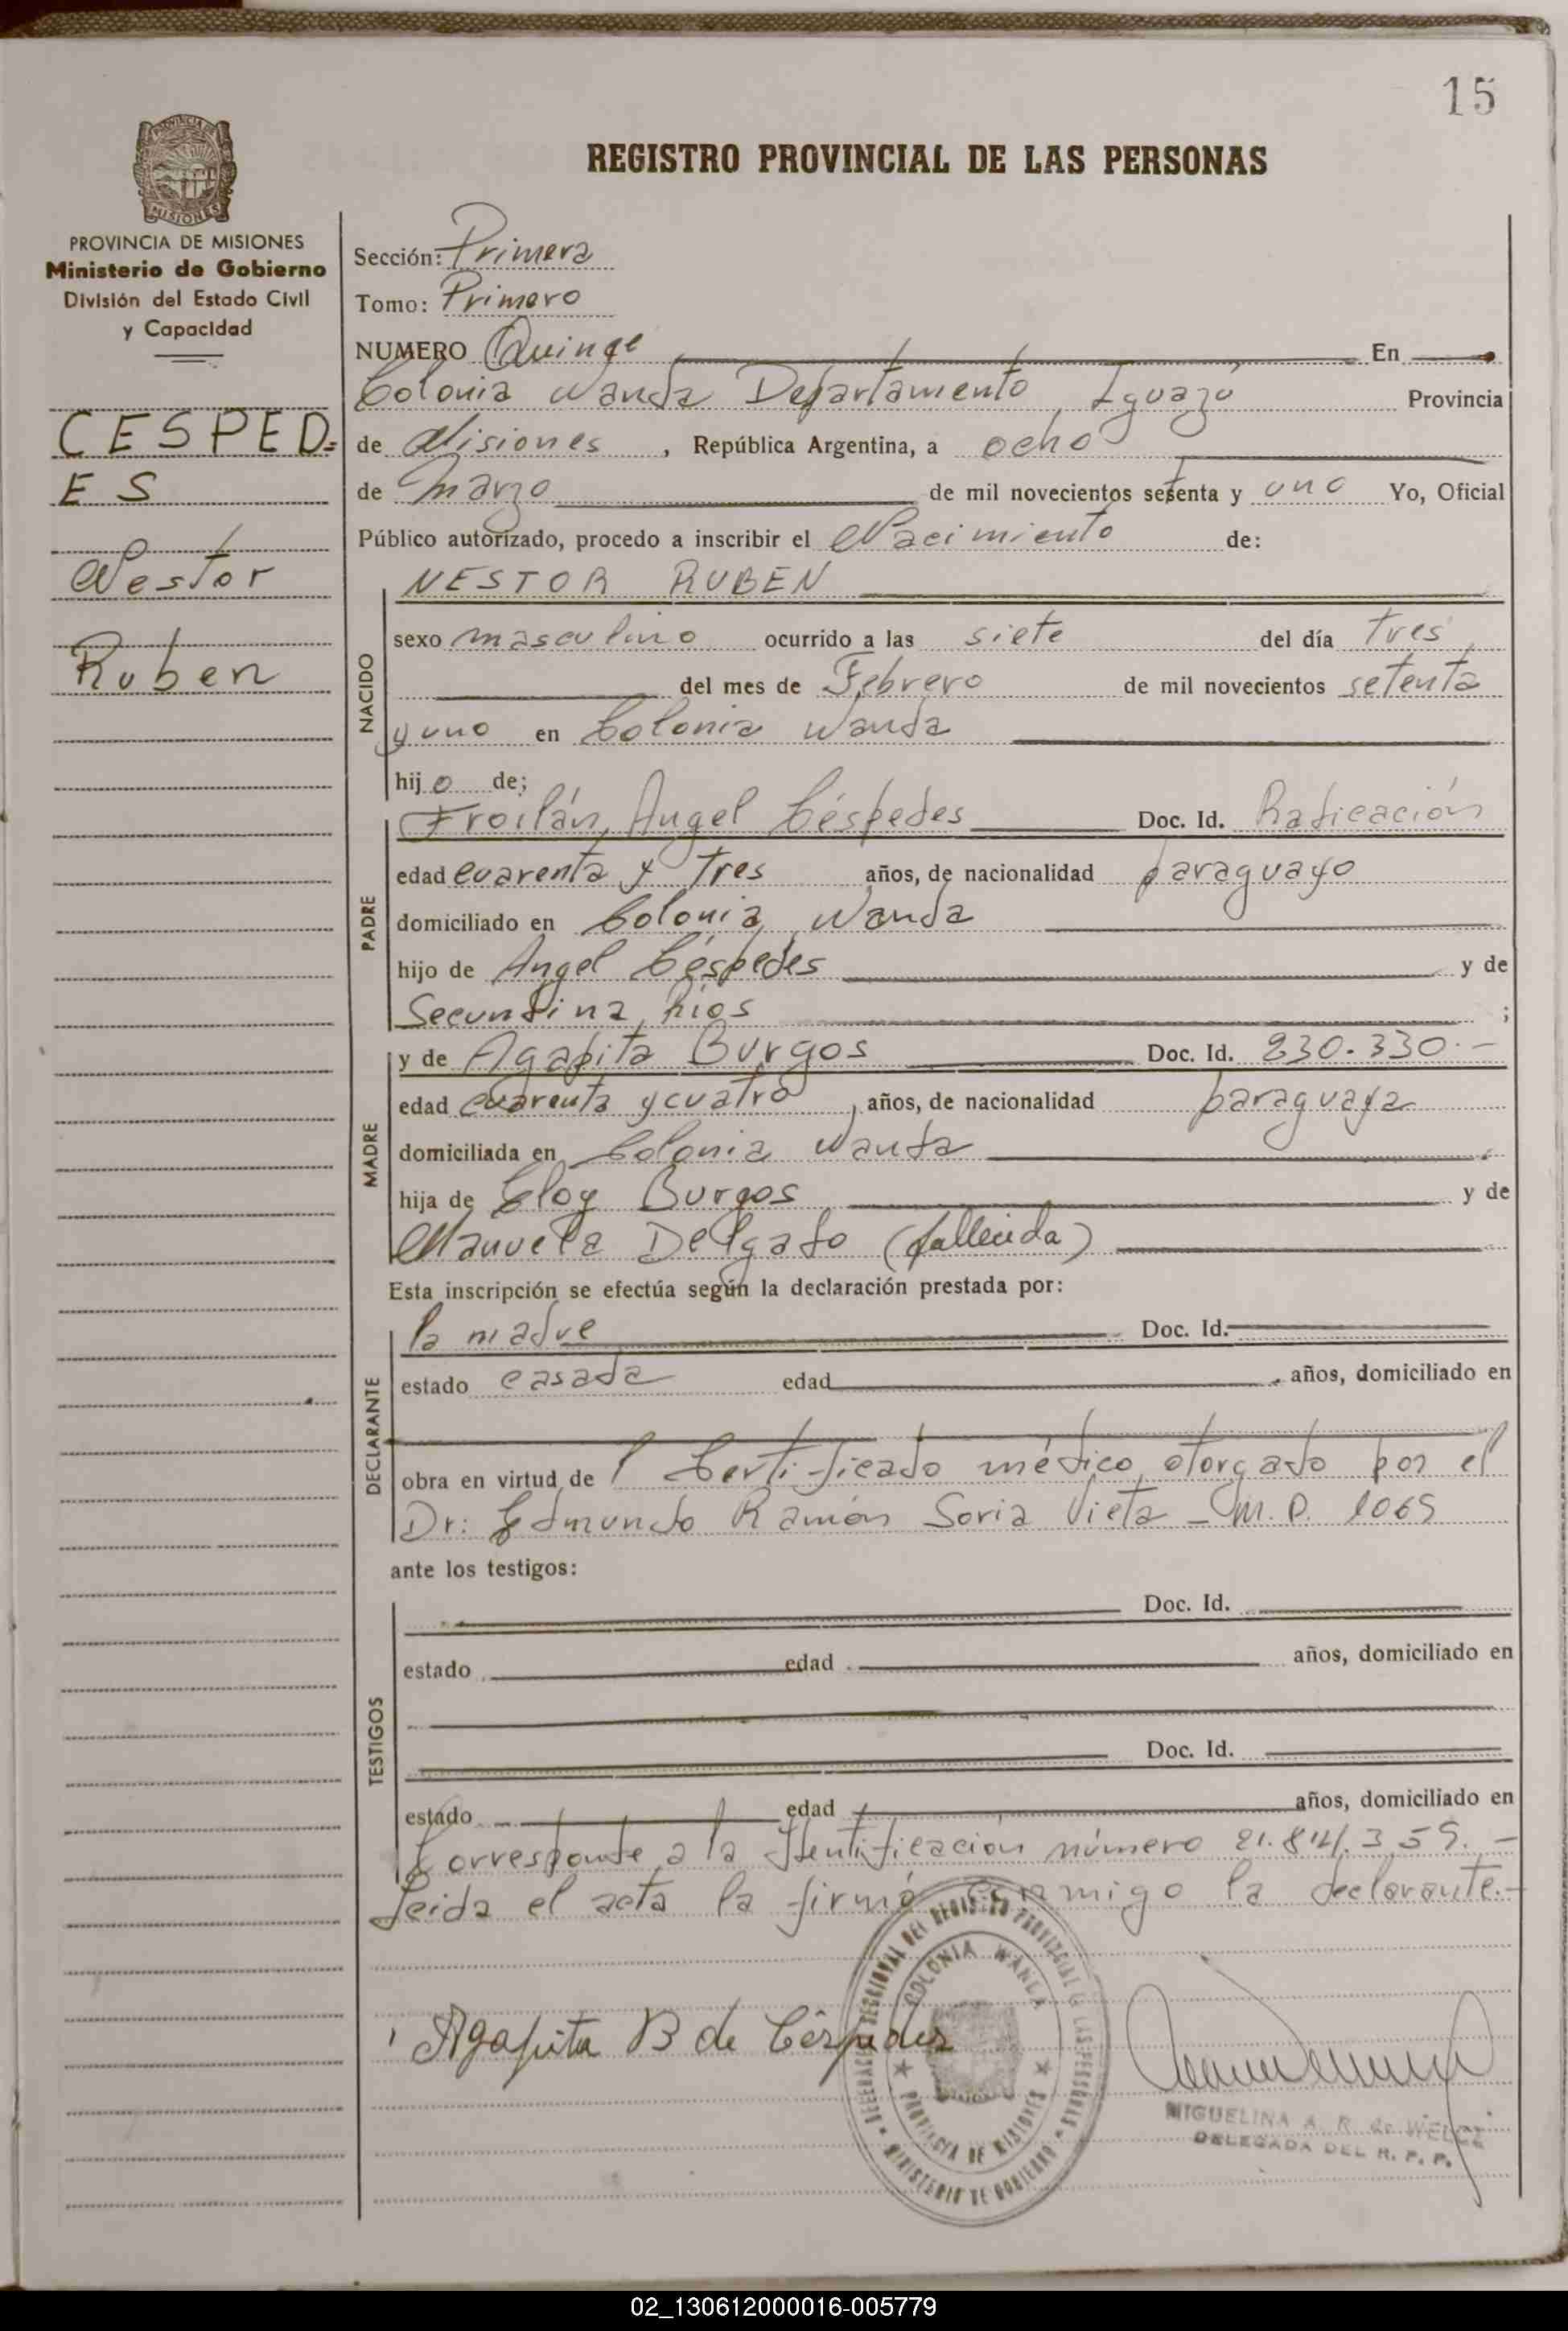 15
REGISTRO PROVINCIAL DE LAS PERSONAS
PROVINCIA DE MISIONES
Ministerio de Gobierno
División del Estado Civil
y Capacidad
CESPED=
ES
Nestor
Ruben
Sección: Primera
Tomo: Primero
NUMERO Quince En
Colonia Wanda Departamento Iguazú Provincia
de Misiones, República Argentina, a ocho
de marzo de mil novecientos setenta y uno Yo, Oficial
Público autorizado, procedo a inscribir el Nacimiento de:
NESTOR RUBEN
NACIDO
sexo masculino ocurrido a las siete del día tres
del mes de Febrero de mil novecientos setenta
y uno en Colonia Wanda
hijo de;
PADRE
Froilán Angel Céspedes Doc. Id. Radicación
edad cuarenta y tres años, de nacionalidad paraguayo
domiciliado en Colonia Wanda
hijo de Angel Céspedes y de
Secundina Ríos ;
MADRE
y de Agapita Burgos Doc. Id. 230.330.-
edad cuarenta y cuatro, años, de nacionalidad paraguaya
domiciliada en Colonia Wanda
hija de Eloy Burgos y de
Manuela Delgado (fallecida)
Esta inscripción se efectúa según la declaración prestada por:
DECLARANTE
la madre Doc. Id.
estado casada edad años, domiciliado en
obra en virtud del Certificado médico otorgado por el
Dr: Edmundo Ramón Soria Vieta - M.P. 1065
ante los testigos:
TESTIGOS
Doc. Id.
estado edad años, domiciliado en
Doc. Id.
estado edad años, domiciliado en
Corresponde a la Identificación número 21.814.359.-
Leida el acta la firmó conmigo la declarante.-
Agapita B de Céspedes
COLONIA WANDA
PROVINCIA DE MISIONES
MINISTERIO DE GOBIERNO
MIGUELINA A. R. de
DELEGADA DEL R. P. P.
02_130612000016-005779